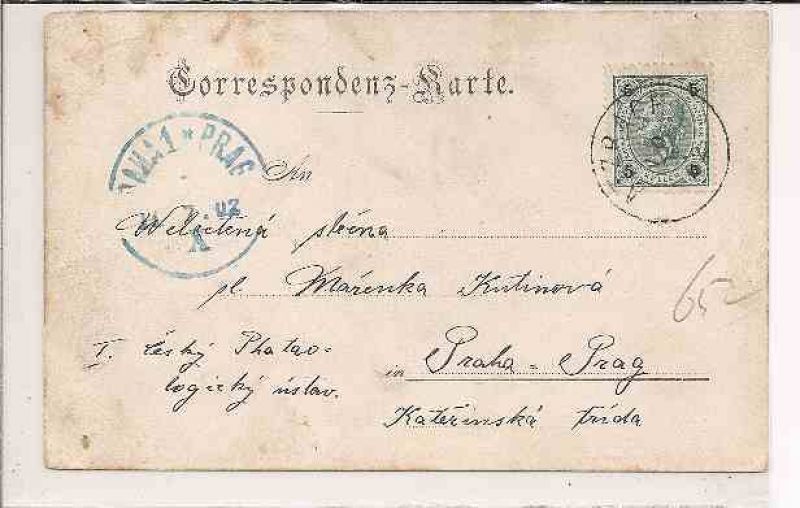 Correspondenz-Karte.
5 5
5 5
PRAHA 1 * PRAG
X 02
An
Welectěná slečna
sl. Mařenka Kutinová
65-
I. český Phatao-
logický ústav.
in Praha - Prag
Kateřinská třída